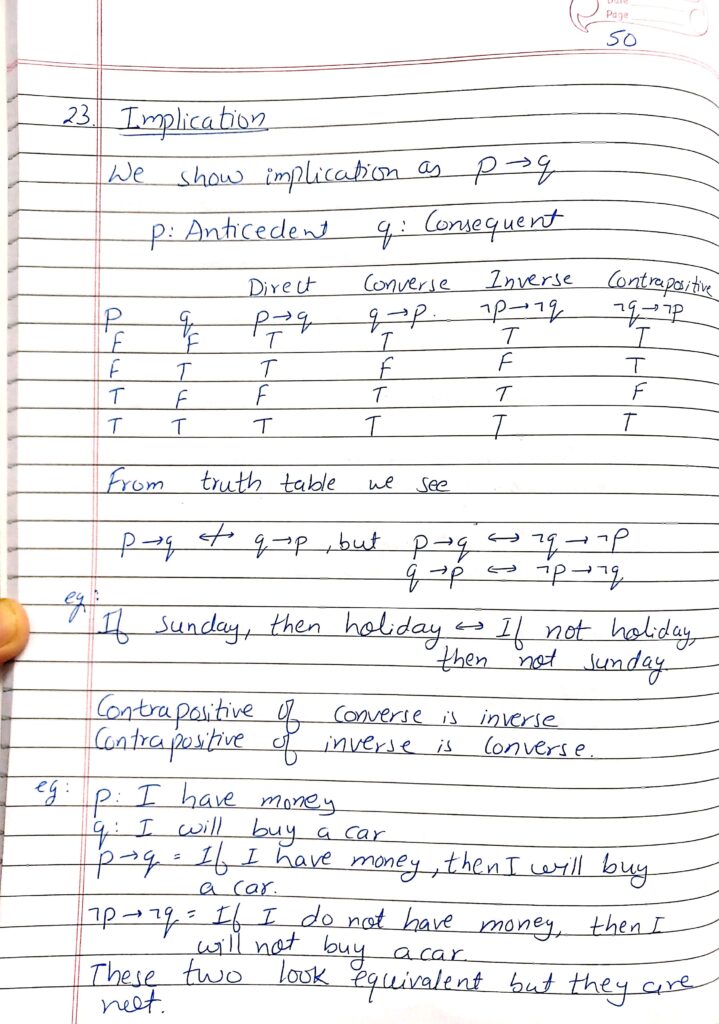 Page
50
23. Implication
We show implication as p → q
p: Anticedent q: Consequent
Direct Converse Inverse Contrapositive
P q p→q q→p. ¬p→¬q ¬q→¬p
F F T T T T
F T T F F T
T F F T T F
T T T T T T
From truth table we see
p→q ↮ q→p, but p→q ↔ ¬q→¬p
q→p ↔ ¬p→¬q
eg:
If sunday, then holiday ↔ If not holiday,
then not sunday
Contrapositive of converse is inverse
Contrapositive of inverse is converse.
eg: p: I have money
q: I will buy a car
p→q = If I have money, then I will buy
a car.
¬p→¬q = If I do not have money, then I
will not buy a car.
These two look equivalent but they are
not.